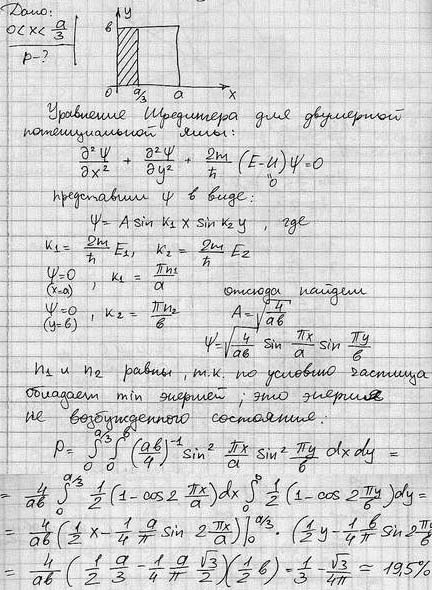 Дано:
0<x<a/3
p-?
y
в
0 a/3 a x
Уравнение Шредингера для двумерной
потенциальной ямы:
∂²Ψ/∂x² + ∂²Ψ/∂y² + 2m/ħ (E-U)Ψ=0
0
представим Ψ в виде:
Ψ= A sin k₁ x sin k₂ y , где
k₁= 2m/ħ E₁, k₂= 2m/ħ E₂
Ψ=0 (x=a) , k₁ = πn₁/a
отсюда найдем
Ψ=0 (y=в) , k₂ = πn₂/в
A=√(4/aв)
Ψ=√(4/aв) sin πx/a sin πy/в
n₁ и n₂ равны, т.к. по условию частица
обладает min энергией; это энергия
не возбужденного состояния:
P= ∫₀^(a/3) ∫₀^в (aв/4)⁻¹ sin² πx/a sin² πy/в dxdy =
= 4/aв ∫₀^(a/3) 1/2 (1-cos2 πx/a)dx ∫₀^в 1/2 (1-cos 2 πy/в)dy =
= 4/aв (1/2 x - 1/4 a/π sin 2 πx/a)|₀^(a/3) · (1/2 y - 1/4 в/π sin 2πy/в
= 4/aв (1/2 a/3 - 1/4 a/π √3/2)(1/2 в) = 1/3 - √3/4π ≃ 19,5%